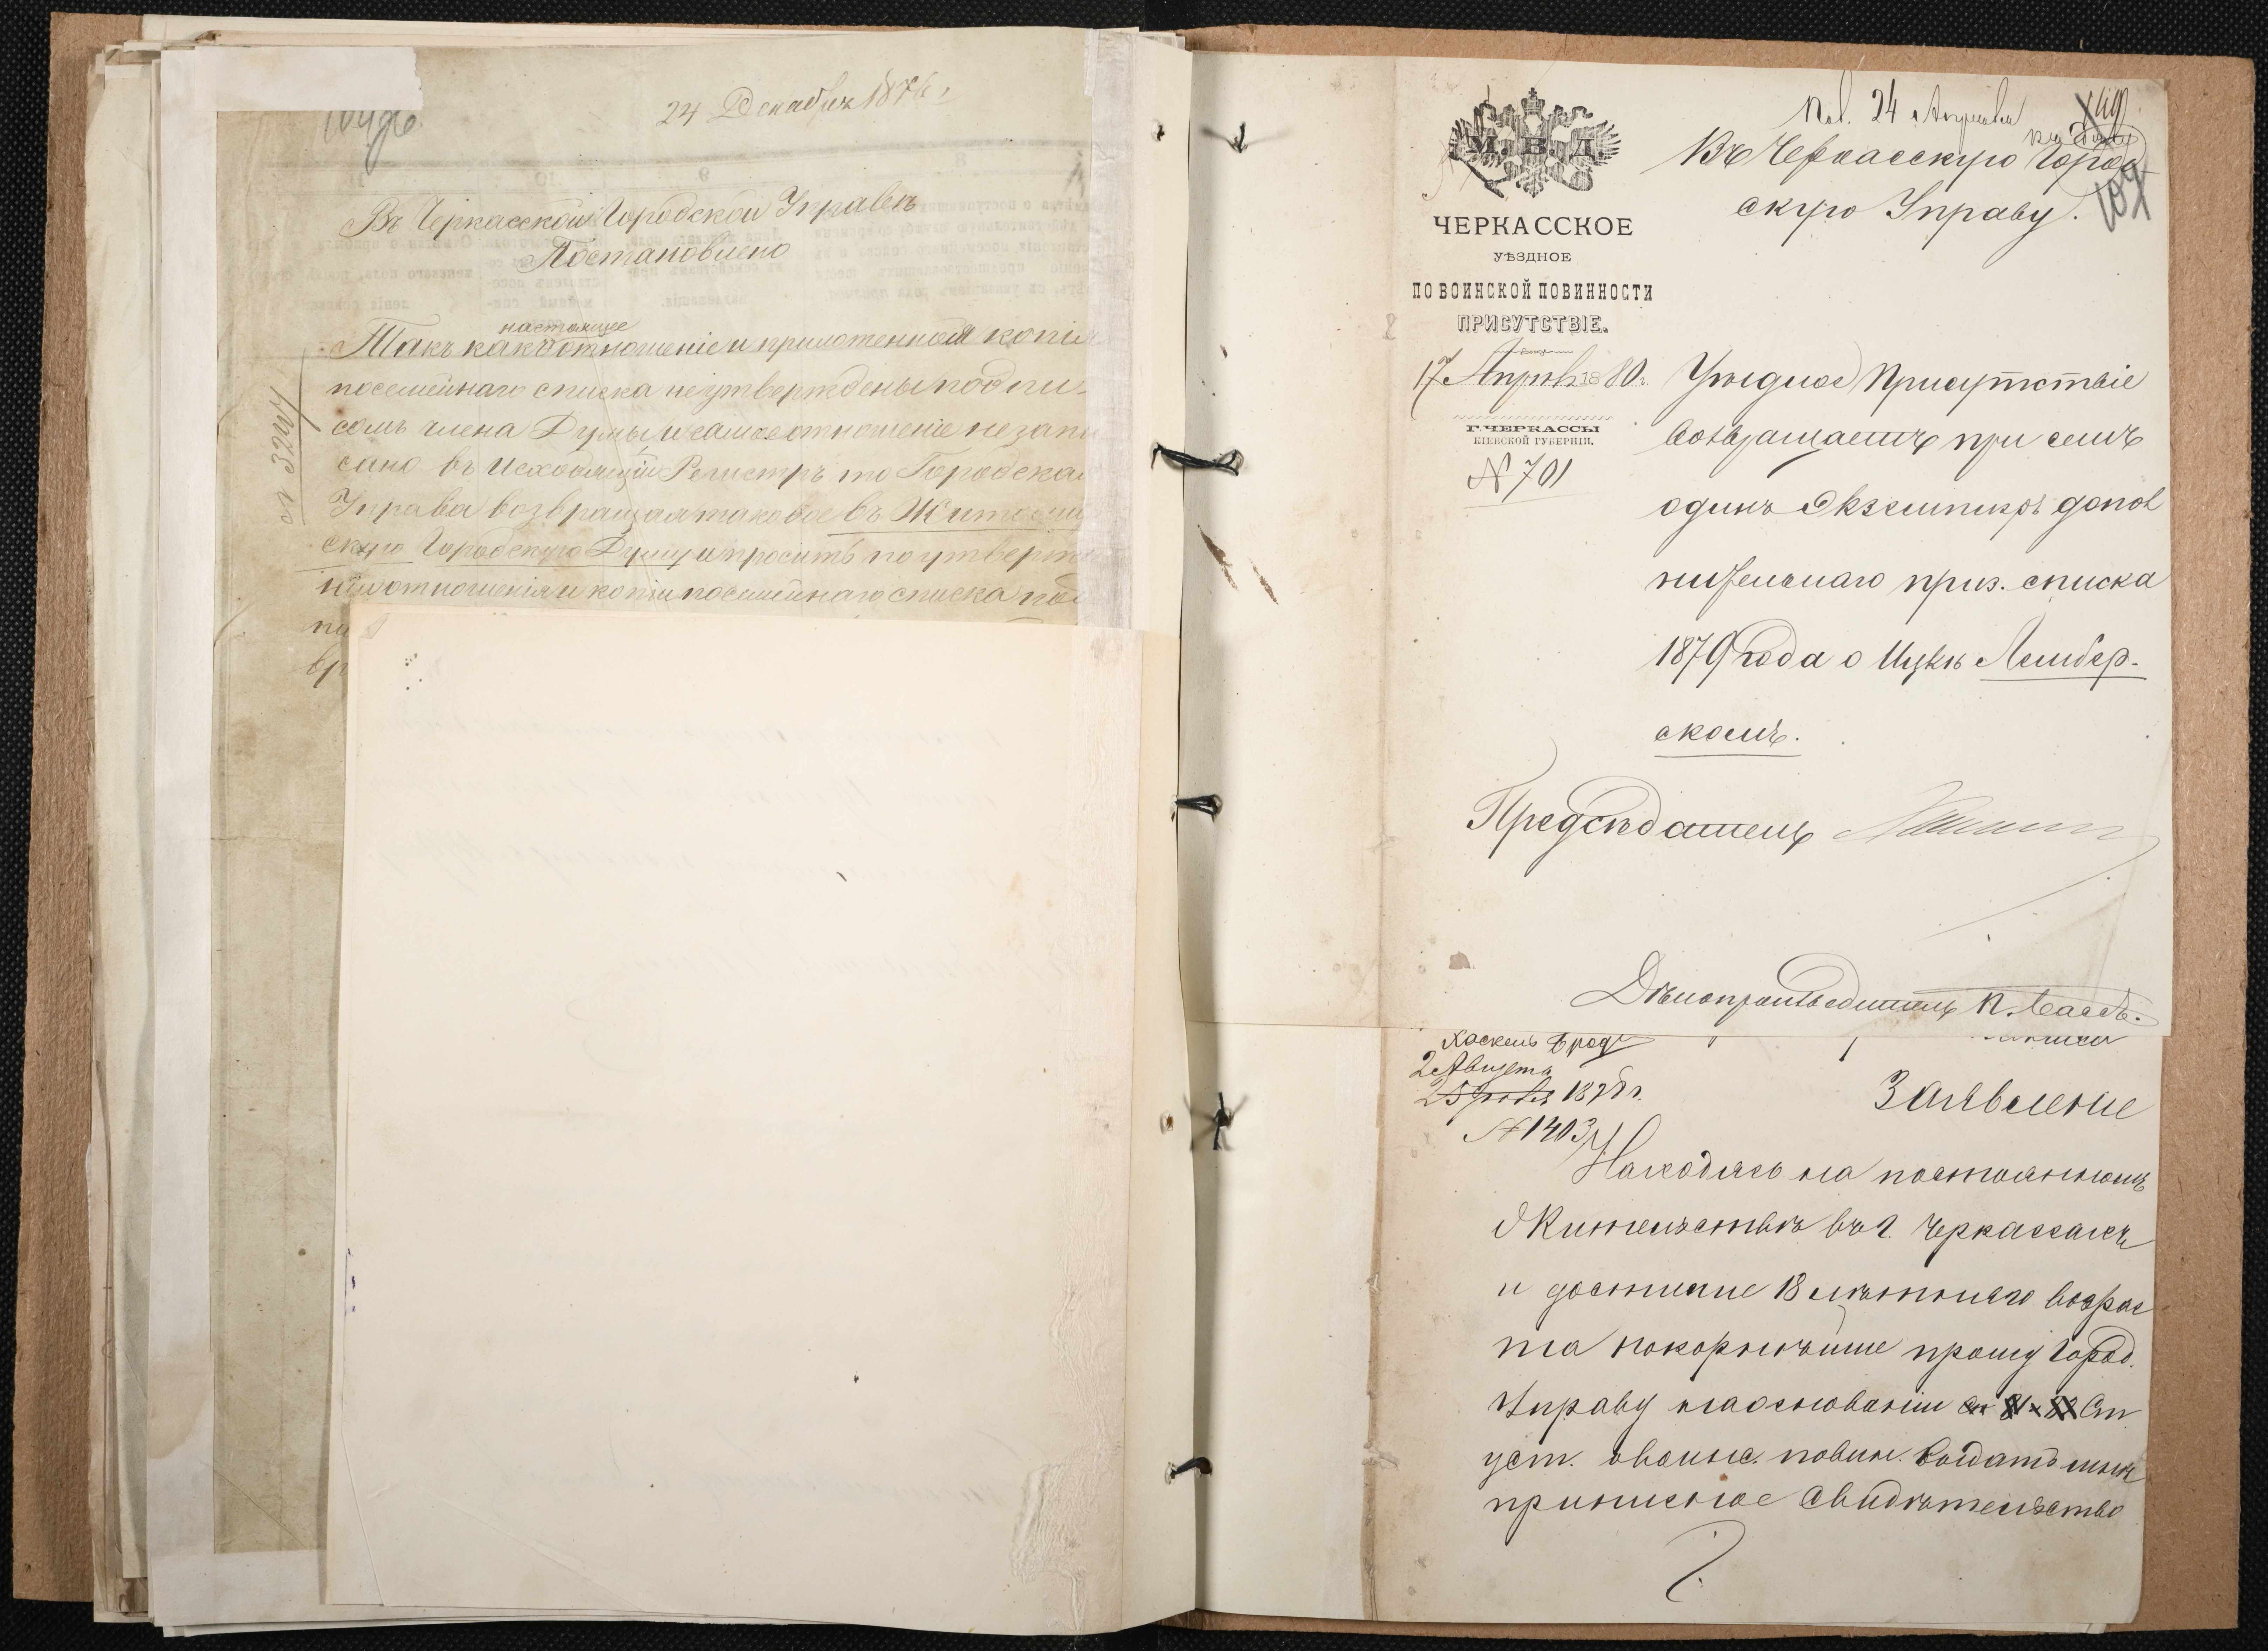 24 Декабря 1876 г.
Въ Черкасской Городской Управѣ
Постановлено
настоящее
Такъ какъ отношеніе и приложенная копія
посемейнаго списка не утверждены подпи-
сомъ члена Думы, и самое отношеніе не запи
сано въ Исходящій Регистръ то Городская
Управа возвращая таковое въ Житомир
скую Городскую Думу и просить по утверж
ніи отношенія и копіи посемейнаго списка под
пи
вр
Пол. 24 Апрѣля
М. В. Д.
Въ Черкасскую Город
скую Управу.
109
ЧЕРКАССКОЕ
УѢЗДНОЕ
ПО ВОИНСКОЙ ПОВИННОСТИ
ПРИСУТСТВІЕ.
17 Апрѣля 1880 г.
Г. ЧЕРКАССЫ
КІЕВСКОЙ ГУБЕРНІИ.
№ 701
Уѣздное Присутствіе
возвращаетъ при семъ
одинъ экземпляръ допол
нительнаго приз. списка
1879 года о Ицкѣ Лембер-
скомъ.
Предсѣдатель
Дѣлопроизводитель П.
Хаскель Брод
2 Августа
1878 г.
№ 1403
Заявление
Находясь на постоянномъ
Жительствѣ въ г. Черкассахъ
и достигше 18 лѣтняго возрас
та покорнѣйше прошу Город.
Управу на основаніи Ст
уст. о воинс. повин. выдать мнѣ
приписное свидѣтельство